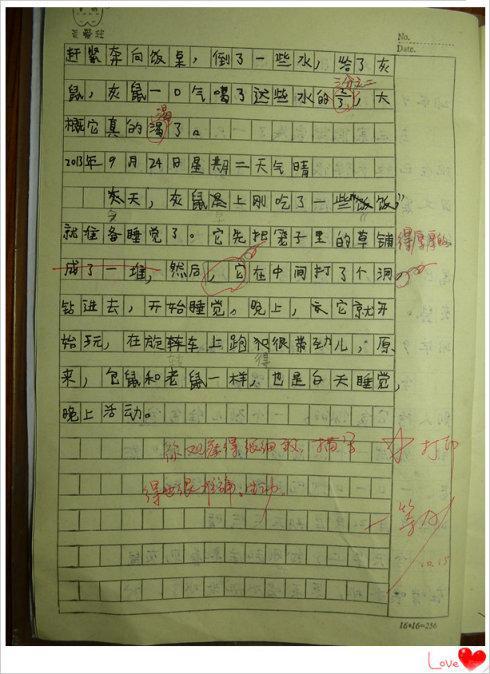 No.
Date.
赶紧奔向饭桌，倒了一些水，给了灰
三分之二
鼠，灰鼠一口气喝了这些水的 ，大
渴
概它真的渴了。
2013年9月24日星期二天气晴
今
天，灰鼠早上刚吃了一些“饭饭”
就准备睡觉了。它先把笼子里的草铺得厚厚的
成了一堆，然后，它在中间打了个洞
钻进去，开始睡觉。晚上，它就开
始玩，在旋转车上跑 很带劲儿，原
得
来，仓鼠和老鼠一样，也是白天睡觉，
晚上活动。
你观察得很细致，描写
得也很准确、生动。
打印
一等
10.15
16*16=256
Love